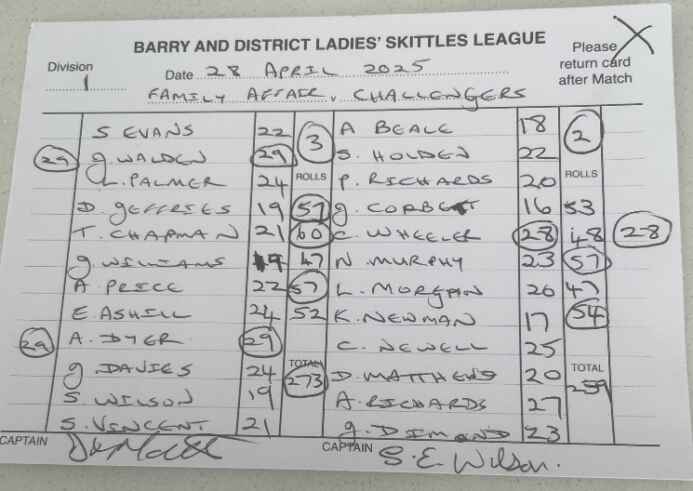 BARRY AND DISTRICT LADIES' SKITTLES LEAGUE
Division 1
Date 28 APRIL 2025
Please return card after Match
FAMILY AFFAIR v CHALLENGERS
S EVANS 22 3 A BEALE 18 2
29 G. WALDEN 29 S. HOLDEN 22
L. PALMER 24 ROLLS P. RICHARDS 20 ROLLS
D. JEFFRIES 19 57 G. CORBETT 16 53
T. CHAPMAN 21 60 C. WHEELER 28 48 28
G. WILLIAMS 19 47 N. MURPHY 23 57
A. PRICE 22 57 L. MORGAN 20 47
E. ASHILL 24 52 K. NEWMAN 17 54
29 A. DYER 29 C. NEWELL 25
G. DAVIES 24 TOTAL 273 D. MATTHEWS 20 TOTAL 259
S. WILSON 19 A. RICHARDS 27
S. VINCENT 21 G. DIMOND 23
CAPTAIN CAPTAIN S. E. Wilson.